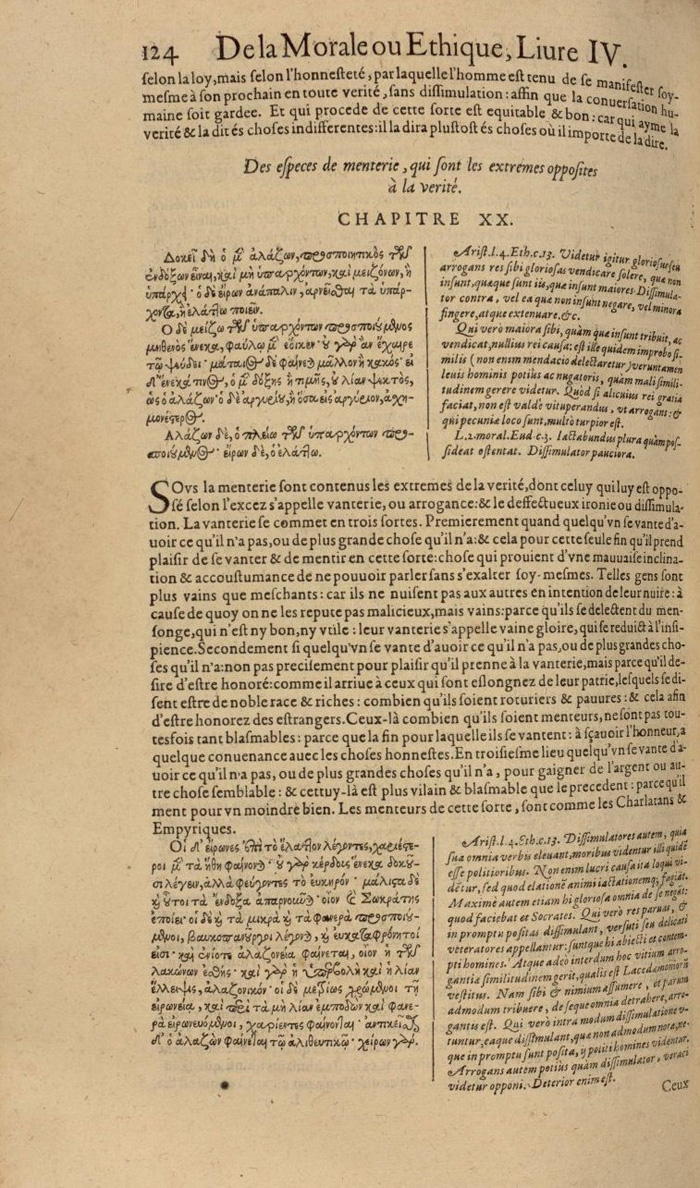 124 De la Morale ou Ethique, Liure IV.
selon la loy, mais selon l'honnesteté, par laquelle l'homme est tenu de se manifester soy-
mesme à son prochain en toute verité, sans dissimulation: affin que la conuersation hu-
maine soit gardee. Et qui procede de cette sorte est equitable & bon: car qui ayme la
verité & la dit és choses indifferentes: il la dira plustost és choses où il importe de la dire.
Des especes de menterie, qui sont les extremes opposites
à la verité.
CHAPITRE XX.
Δοκεῖ δὴ ὁ μ̃ ἀλάζων, προσποιητικὸς τῶν
ἐνδόξων εἶναι, καὶ μὴ ὑπαρχόντων, καὶ μειζόνων, ἢ
ὑπάρχει· ὁ δὲ εἴρων ἀνάπαλιν, ἀρνεῖσθαι τὰ ὑπάρ-
χοντα, ἢ ἐλάττω ποιεῖν.
Ὁ δὲ μείζω τῶν ὑπαρχόντων προσποιούμενος
μηθενὸς ἕνεκα, φαύλῳ μ̃ ἔοικεν· οὐ γὰρ ἂν ἔχαιρε
τῷ ψεύδει· μάταιος δὲ φαίνεται μᾶλλον ἢ κακός· εἰ
δ' ἕνεκά τινος, ὁ μ̃ δόξης ἢ τιμῆς, οὐ λίαν ψεκτὸς,
ὡς ὁ ἀλάζων· ὁ δὲ ἀργυρίου, ἢ ὅσα εἰς ἀργύριον, ἀσχη-
μονέστερος.
Ἀλάζων δὲ, ὁ πλείω τῶν ὑπαρχόντων προσ-
ποιούμενος· εἴρων δὲ, ὁ ἐλάττω.
Arist. l. 4. Eth. c. 13. Videtur igitur gloriosus seu
arrogans res sibi gloriosas vendicare solere, quæ non
insunt, quæque sunt iis, quæ insunt maiores. Dissimula-
tor contra, vel ea quæ non insunt negare, vel minora
fingere, atque extenuare, &c.
Qui verò maiora sibi, quàm quæ insunt tribuit, ac
vendicat, nullius rei causa: est ille quidem improbo si-
milis (non enim mendacio delectaretur) veruntamen
leuis hominis potius ac nugatoris, quàm mali simili-
tudinem gerere videtur. Quod si alicuius rei gratia
faciat, non est valdè vituperandus, vt arrogans: &
qui pecuniæ loco sunt, multò turpior est.
L. 2. moral. Eud. c. 3. Iactabundus plura quàm pos-
sideat ostentat. Dissimulator pauciora.
SOvs la menterie sont contenus les extremes de la verité, dont celuy qui luy est oppo-
sé selon l'excez s'appelle vanterie, ou arrogance: & le deffectueux ironie ou dissimula-
tion. La vanterie se commet en trois sortes. Premierement quand quelqu'vn se vante d'a-
uoir ce qu'il n'a pas, ou de plus grande chose qu'il n'a: & cela pour cette seule fin qu'il prend
plaisir de se vanter & de mentir en cette sorte: chose qui prouient d'vne mauuaise inclina-
tion & accoustumance de ne pouuoir parler sans s'exalter soy-mesmes. Telles gens sont
plus vains que meschants: car ils ne nuisent pas aux autres en intention de leur nuire: à
cause de quoy on ne les repute pas malicieux, mais vains: parce qu'ils se delectent du men-
songe, qui n'est ny bon, ny vtile: leur vanterie s'appelle vaine gloire, qui se reduict à l'insi-
pience. Secondement si quelqu'vn se vante d'auoir ce qu'il n'a pas, ou de plus grandes cho-
ses qu'il n'a: non pas precisement pour plaisir qu'il prenne à la vanterie, mais parce qu'il de-
sire d'estre honoré: comme il arriue à ceux qui sont eslongnez de leur patrie, lesquels se di-
sent estre de noble race & riches: combien qu'ils soient roturiers & pauures: & cela afin
d'estre honorez des estrangers. Ceux-là combien qu'ils soient menteurs, ne sont pas tou-
tesfois tant blasmables: parce que la fin pour laquelle ils se vantent: à sçauoir l'honneur, a
quelque conuenance auec les choses honnestes. En troisiesme lieu quelqu'vn se vante d'a-
uoir ce qu'il n'a pas, ou de plus grandes choses qu'il n'a, pour gaigner de l'argent ou au-
tre chose semblable: & cettuy-là est plus vilain & blasmable que le precedent: parce qu'il
ment pour vn moindre bien. Les menteurs de cette sorte, sont comme les Charlatans &
Empyriques.
Οἱ δ' εἴρωνες ἐπὶ τὸ ἔλαττον λέγοντες, χαριέστε-
ροι μ̃ τὰ ἤθη φαίνονται· οὐ γὰρ κέρδους ἕνεκα δοκοῦ-
σι λέγειν, ἀλλὰ φεύγοντες τὸ ὀγκηρόν· μάλιστα δὲ
καὶ οὗτοι τὰ ἔνδοξα ἀπαρνοῦνται· οἷον καὶ Σωκράτης
ἐποίει· οἱ δὲ καὶ τὰ μικρὰ καὶ τὰ φανερὰ προσποιού-
μενοι, βαυκοπανοῦργοι λέγονται, καὶ εὐκαταφρόνητοί
εἰσι· καὶ ἐνίοτε ἀλαζονεία φαίνεται, οἷον ἡ τῶν
λακώνων ἐσθής· καὶ γὰρ ἡ ὑπερβολὴ καὶ ἡ λίαν
ἔλλειψις, ἀλαζονικόν· οἱ δὲ μετρίως χρώμενοι τῇ
εἰρωνείᾳ, καὶ περὶ τὰ μὴ λίαν ἐμποδὼν καὶ φανε-
ρὰ εἰρωνευόμενοι, χαρίεντες φαίνονται· ἀντικεῖσθαι
δ' ὁ ἀλαζὼν φαίνεται τῷ ἀληθευτικῷ· χείρων γάρ.
Arist. l. 4. Eth. c. 13. Dissimulatores autem, quia
sua omnia verbis eleuant, moribus videntur illi quidē
esse politioribus. Non enim lucri causa ita loqui vi-
dētur, sed quod elationē animi iactationemq; fugiāt.
Maximè autem etiam hi gloriosa omnia de se negāt:
quod faciebat et Socrates. Qui verò res paruas, &
in promptu positas dissimulant, versuti seu delicati
veteratores appellantur: suntque hi abiecti et contem-
pti homines. Atque adeò interdum hoc vitium arro-
gantiæ similitudinem gerit, qualis est Lacedæmoniorū
vestitus. Nam sibi & nimium assumere, et parum
admodum tribuere, de seque omnia detrahere, arro-
gantis est. Qui verò intra modum dissimulatione v-
tuntur, eaque dissimulant, quæ non admodum nota, ne-
que in promptu sunt posita, ij politi homines videntur.
Arrogans autem potius quàm dissimulator, veraci
videtur opponi. Deterior enim est.
Ceux